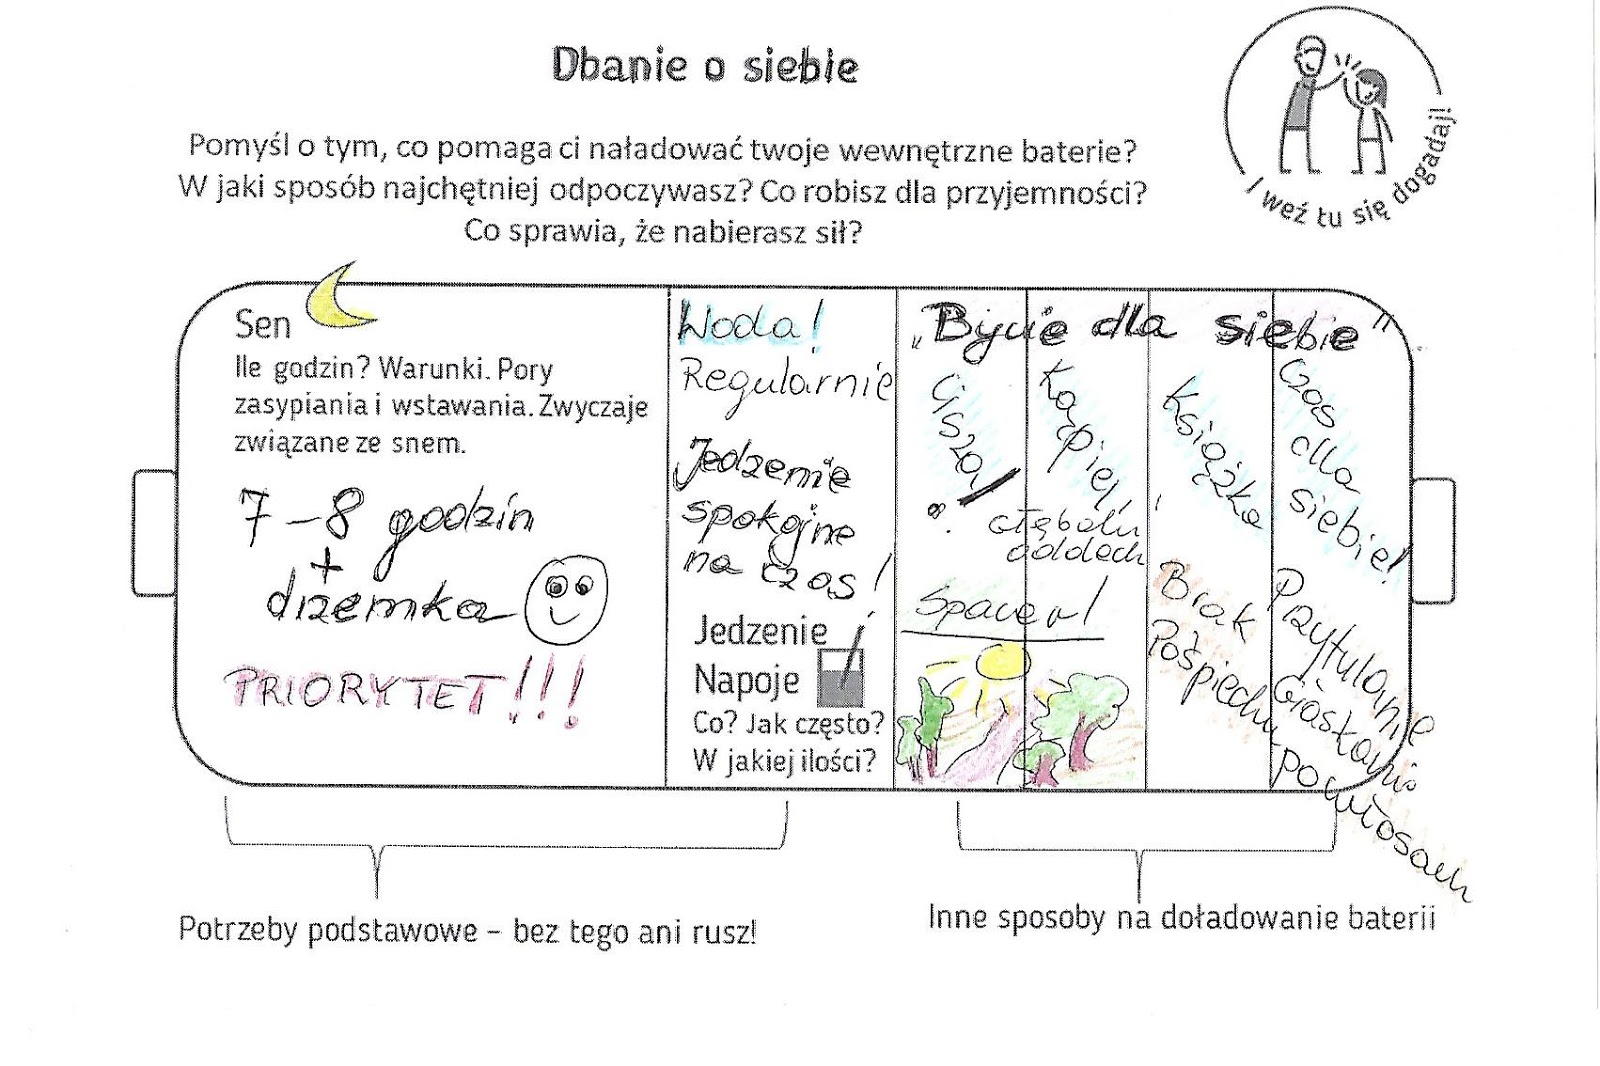 Dbanie o siebie
Pomyśl o tym, co pomaga ci naładować twoje wewnętrzne baterie?
W jaki sposób najchętniej odpoczywasz? Co robisz dla przyjemności?
Co sprawia, że nabierasz sił?
I weź tu się dogadaj!
Sen
Ile godzin? Warunki. Pory
zasypiania i wstawania. Zwyczaje
związane ze snem.
7-8 godzin
+
drzemka
PRIORYTET!!!
Woda!
Regularnie
Jedzenie
spokojne
na czas!
Jedzenie
Napoje
Co? Jak często?
W jakiej ilości?
„Bycie dla siebie"
Cisza!
Kąpiel,
głęboki
oddech
Spacer!
Książka
Brak
Pośpiechu
Czas
dla
siebie!
Przytulanie
Głaskanie
po włosach
Potrzeby podstawowe – bez tego ani rusz!
Inne sposoby na doładowanie baterii